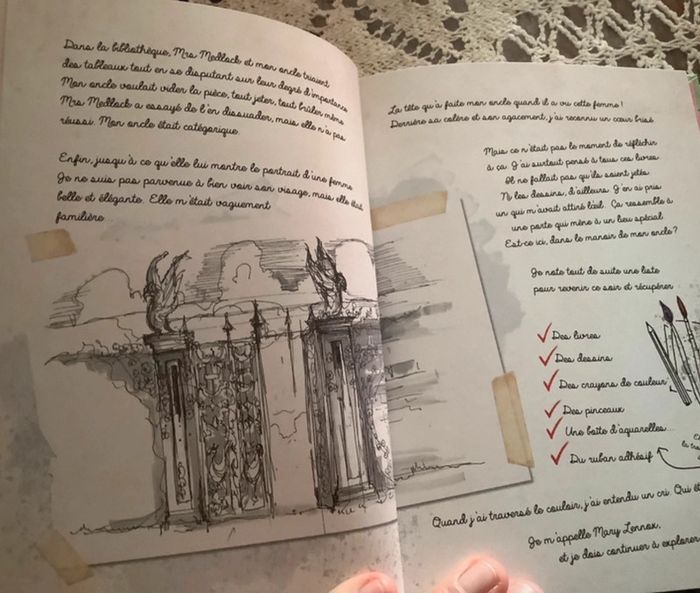 Dans la bibliothèque, Mrs Medlock et mon oncle triaient
des tableaux tout en se disputant sur leur degré d'importance
Mon oncle voulait vider la pièce, tout jeter, tout brûler même
Mrs Medlock a essayé de l'en dissuader, mais elle n'a pas
réussi. Mon oncle était catégorique.
Enfin, jusqu'à ce qu'elle lui montre le portrait d'une femme
Je ne suis pas parvenue à bien voir son visage, mais elle était
belle et élégante. Elle m'était vaguement
familière
La tête qu'a faite mon oncle quand il a vu cette femme !
Derrière sa colère et son agacement, j'ai reconnu un cœur brisé
Mais ce n'était pas le moment de réfléchir
à ça. J'ai surtout pensé à tous ces livres
Il ne fallait pas qu'ils soient jetés
Ni les dessins, d'ailleurs. J'en ai pris
un qui m'avait attiré l'œil. Ça ressemble à
une porte qui mène à un lieu spécial
Est-ce ici, dans le manoir de mon oncle?
Je note tout de suite une liste
pour revenir ce soir et récupérer
Des livres
Des dessins
Des crayons de couleur
Des pinceaux
Une boîte d'aquarelles...
Du ruban adhésif
la
Quand j'ai traversé le couloir, j'ai entendu un cri. Qui
Je m'appelle Mary Lennox,
et je dois continuer à explorer